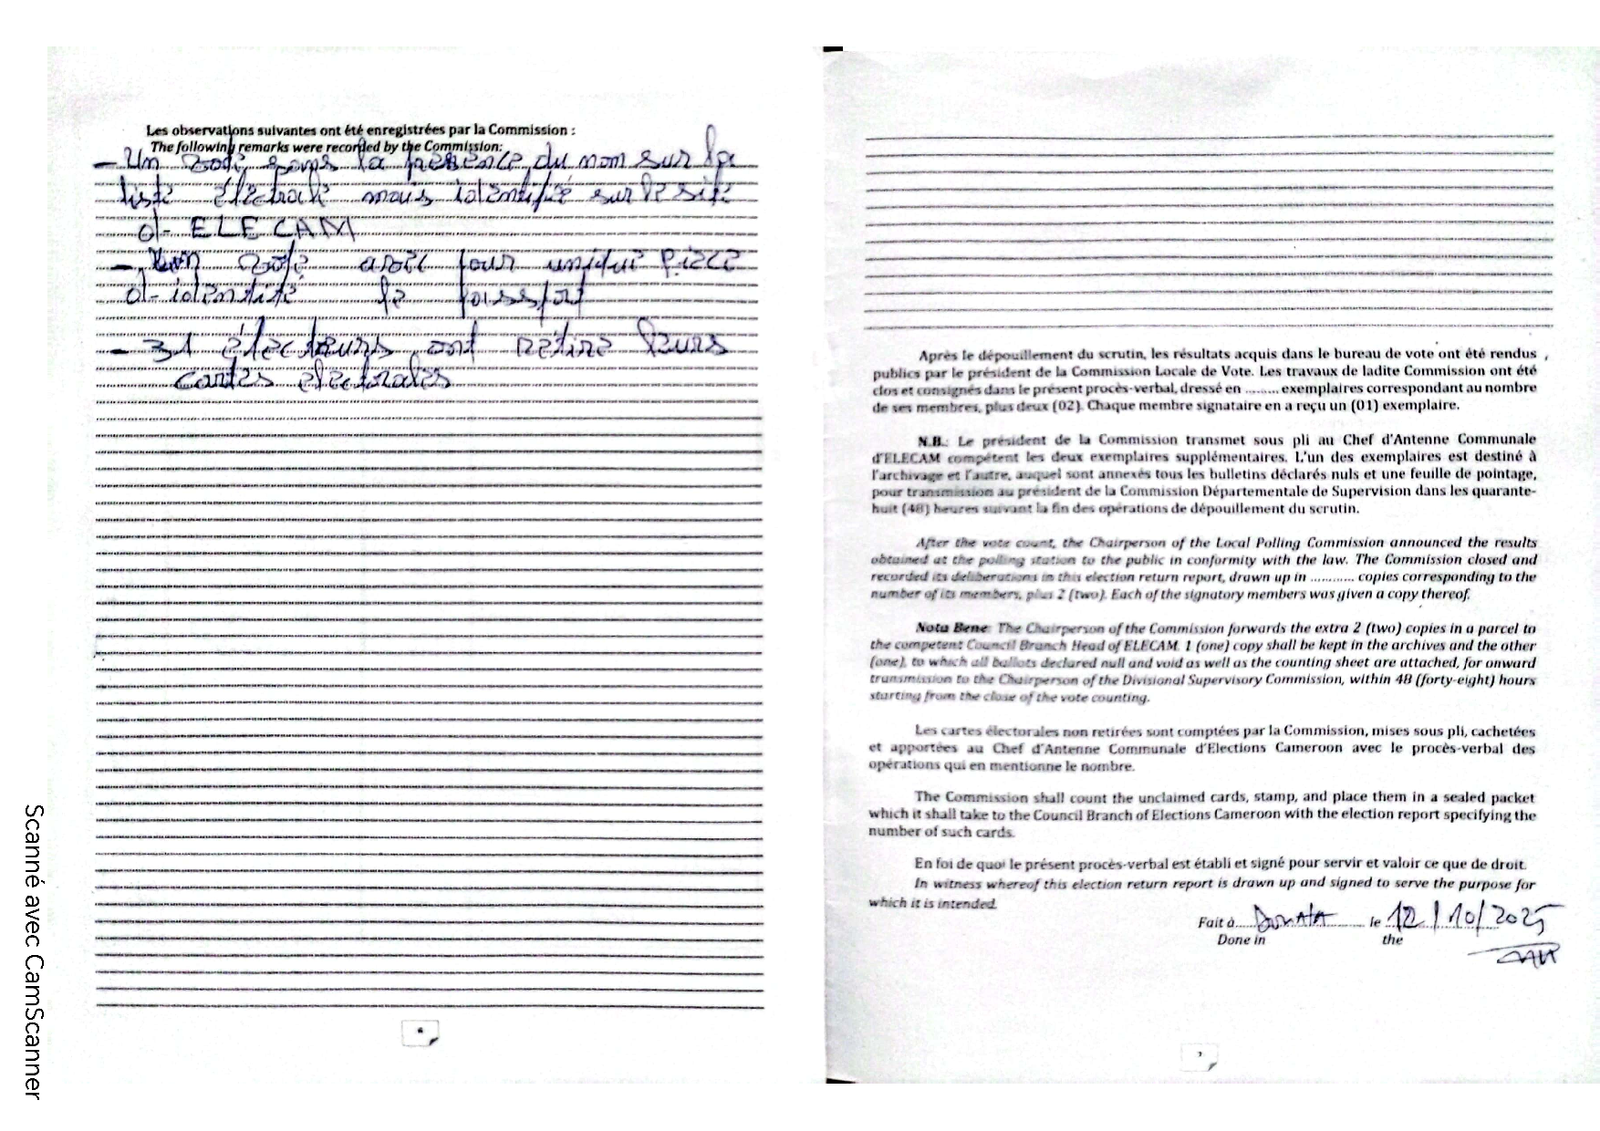 Les observations suivantes ont été enregistrées par la Commission :
The following remarks were recorded by the Commission:
- Un vote sans la présence du nom sur la
liste électrale mais identifié sur le site
d- ELECAM
- Un vote avec pour unique pièce
d- identité le passport
- 31 électeurs ont retiré leurs
cartes électorales
6
Après le dépouillement du scrutin, les résultats acquis dans le bureau de vote ont été rendus
publics par le président de la Commission Locale de Vote. Les travaux de ladite Commission ont été
clos et consignés dans le présent procès-verbal, dressé en ......... exemplaires correspondant au nombre
de ses membres, plus deux (02). Chaque membre signataire en a reçu un (01) exemplaire.
N.B.: Le président de la Commission transmet sous pli au Chef d'Antenne Communale
d'ELECAM compétent les deux exemplaires supplémentaires. L'un des exemplaires est destiné à
l'archivage et l'autre, auquel sont annexés tous les bulletins déclarés nuls et une feuille de pointage,
pour transmission au président de la Commission Départementale de Supervision dans les quarante-
huit (48) heures suivant la fin des opérations de dépouillement du scrutin.
After the vote count, the Chairperson of the Local Polling Commission announced the results
obtained at the polling station to the public in conformity with the law. The Commission closed and
recorded its deliberations in this election return report, drawn up in ............ copies corresponding to the
number of its members, plus 2 (two). Each of the signatory members was given a copy thereof.
Nota Bene: The Chairperson of the Commission forwards the extra 2 (two) copies in a parcel to
the competent Council Branch Head of ELECAM. 1 (one) copy shall be kept in the archives and the other
(one), to which all ballots declared null and void as well as the counting sheet are attached, for onward
transmission to the Chairperson of the Divisional Supervisory Commission, within 48 (forty-eight) hours
starting from the close of the vote counting.
Les cartes électorales non retirées sont comptées par la Commission, mises sous pli, cachetées
et apportées au Chef d'Antenne Communale d'Elections Cameroon avec le procès-verbal des
opérations qui en mentionne le nombre.
The Commission shall count the unclaimed cards, stamp, and place them in a sealed packet
which it shall take to the Council Branch of Elections Cameroon with the election report specifying the
number of such cards.
En foi de quoi le présent procès-verbal est établi et signé pour servir et valoir ce que de droit.
In witness whereof this election return report is drawn up and signed to serve the purpose for
which it is intended.
Fait à.... DOUALA ........ le 12/10/2025
Done in the
7
Scanné avec CamScanner